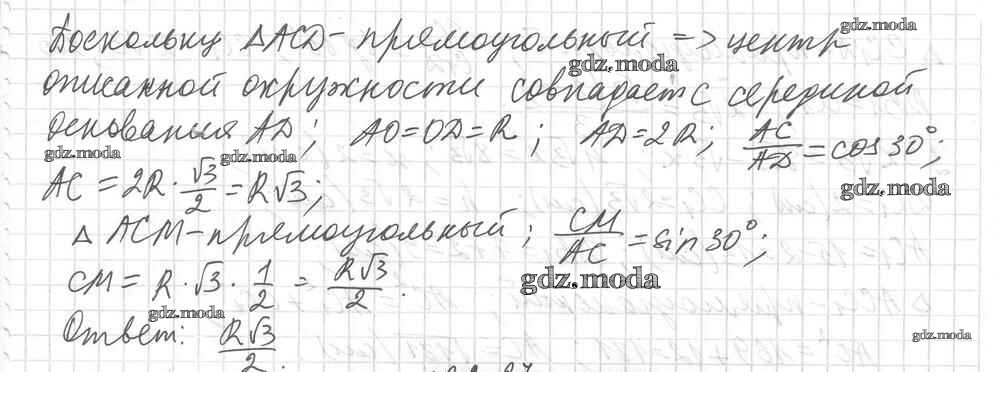 Поскольку △ACD - прямоугольный => центр
описанной окружности совпадает с серединой
основания AD; AO=OD=R; AD=2R; AC/AD = cos 30°;
AC = 2R · √3/2 = R√3;
△ ACM - прямоугольный; CM/AC = sin 30°;
CM = R · √3 · 1/2 = R√3/2.
Ответ: R√3/2.
gdz.moda
gdz.moda
gdz.moda
gdz.moda
gdz.moda
gdz.moda
gdz.moda
gdz.moda